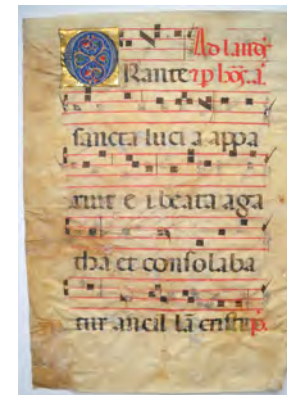 Ad laud
ORante ⁊ p hoꝝ. a.
sancta luci a appa
ruit e i beata aga
tha et consolaba
tur ancil lā cristi p.